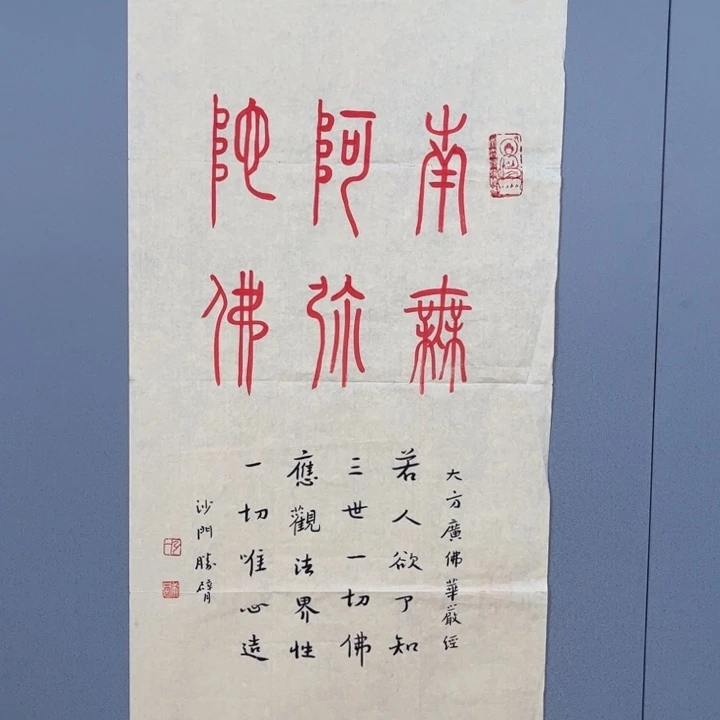 南無
阿弥
陀佛
大方廣佛華嚴經
若人欲了知
三世一切佛
應觀法界性
一切唯心造
沙門勝臂